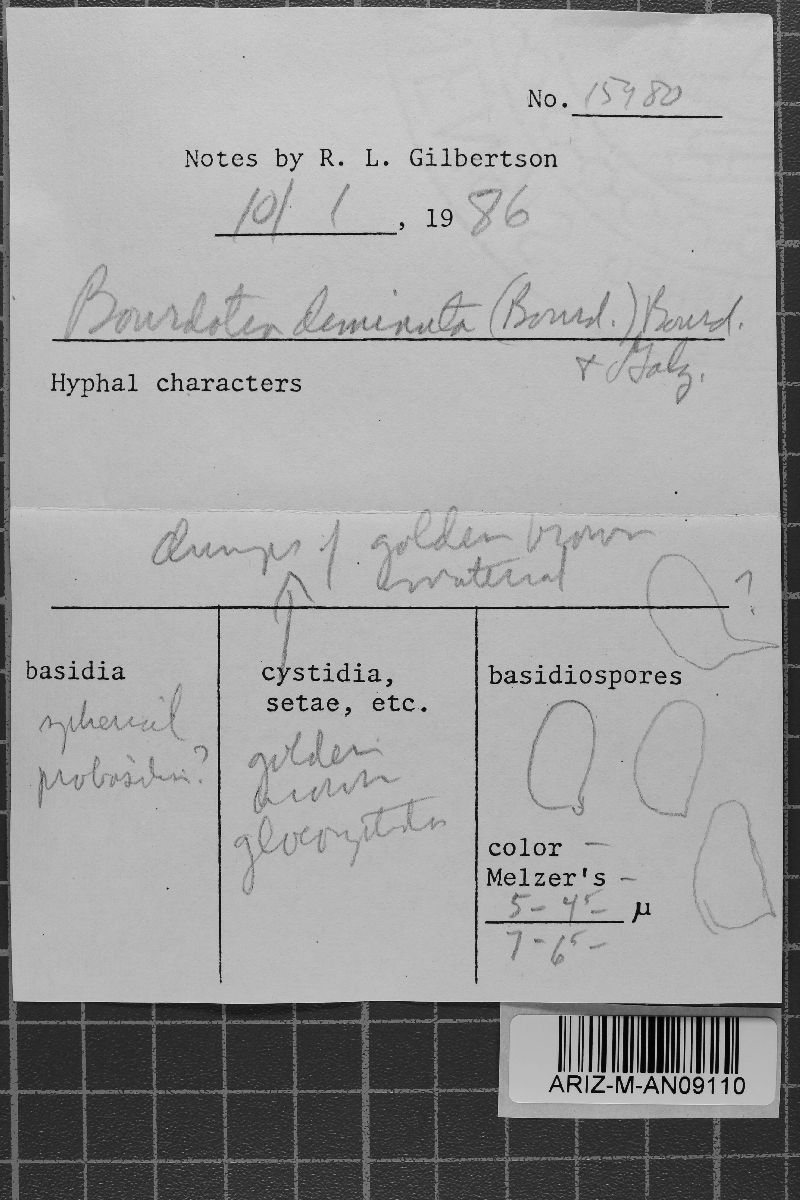 No. 15980
Notes by R. L. Gilbertson
10/ 1, 1986
Bourdotia deminuta (Bourd.) Bourd.
& Galz.
Hyphal characters
clumps of golden brown
material
?
basidia
spherical
probasidia?
cystidia,
setae, etc.
golden
brown
gloeocystidia
basidiospores
color —
Melzer's —
5– 4⁵– µ
7–6⁵–
ARIZ-M-AN09110